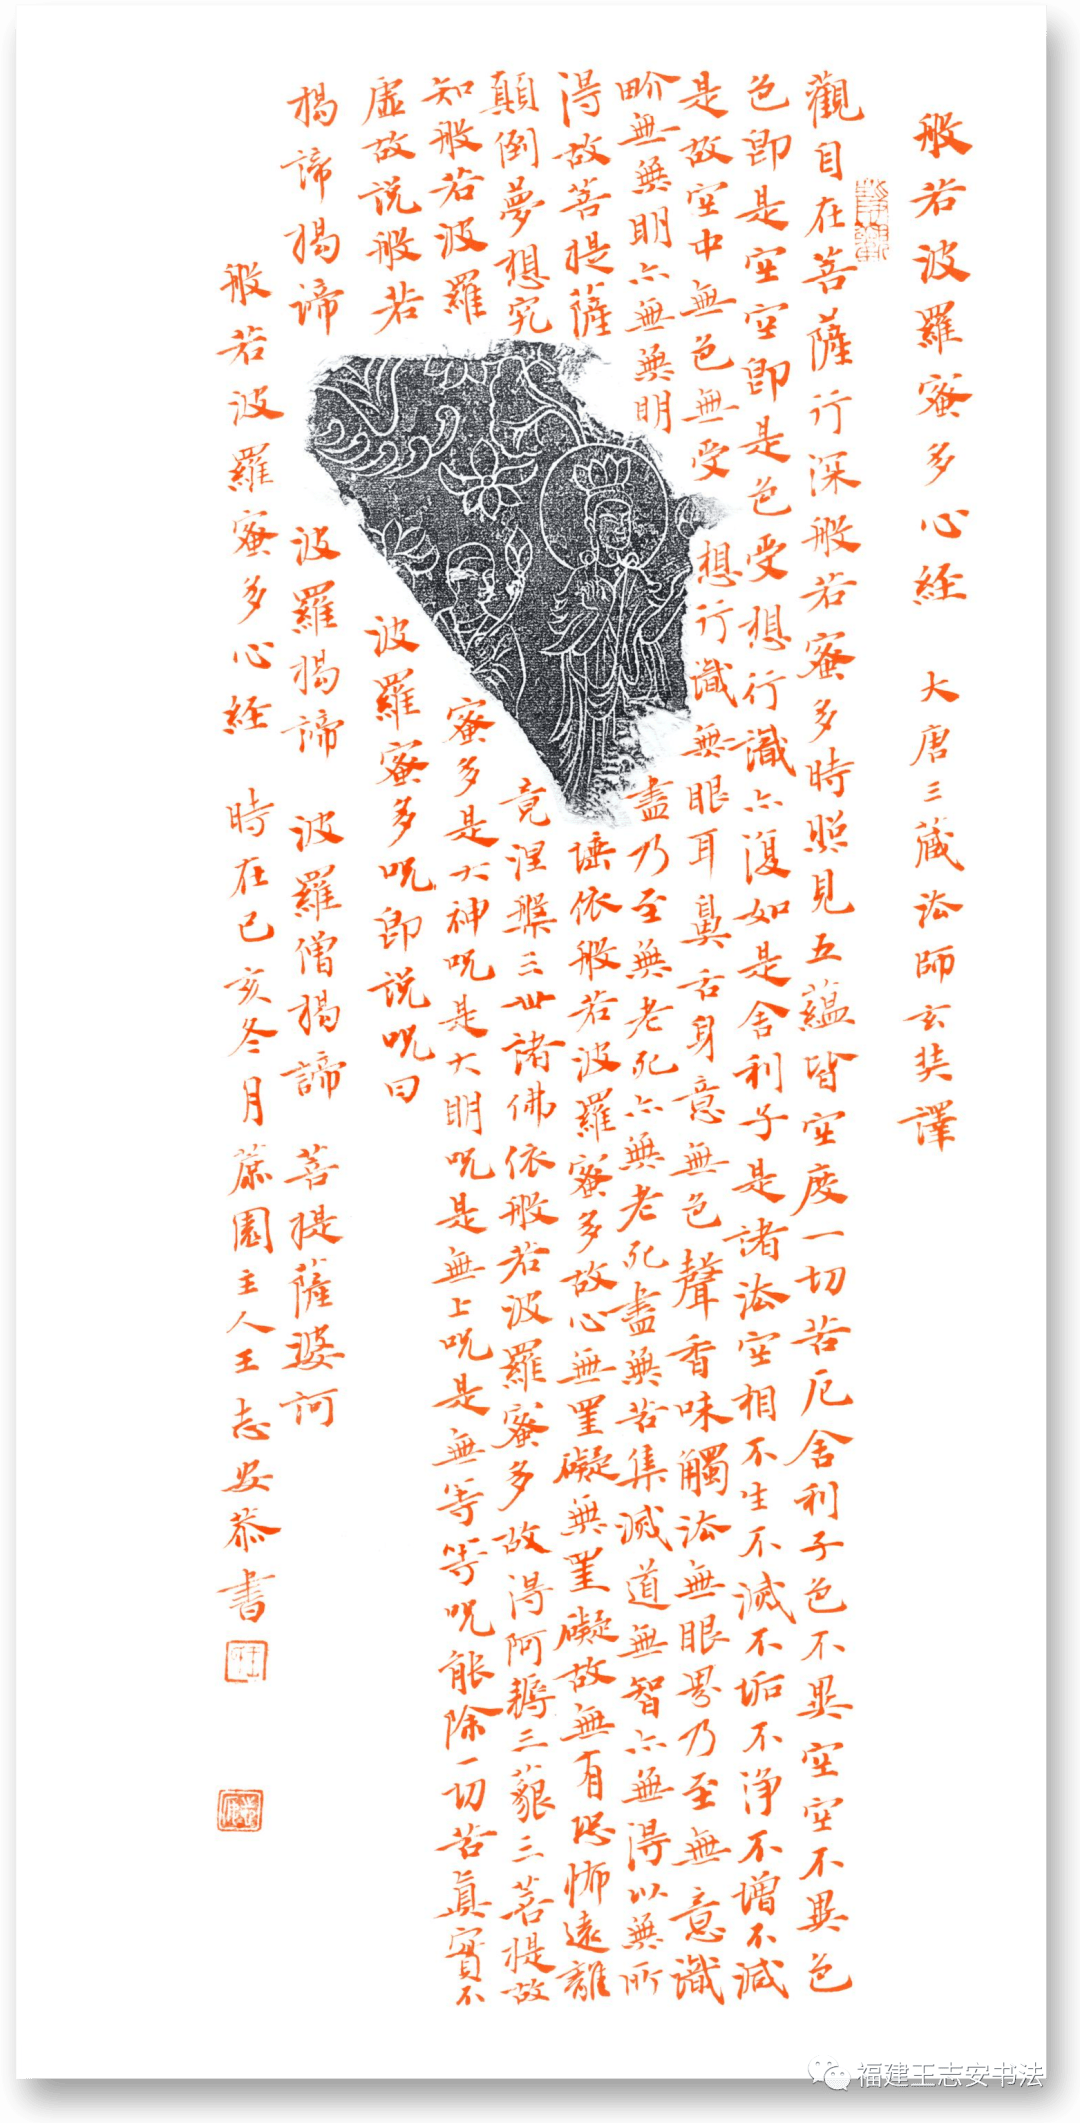 般若波羅蜜多心經 大唐三藏法師玄奘譯
觀自在菩薩行深般若蜜多時照見五蘊皆空度一切苦厄舍利子色不異空空不異色
色即是空空即是色受想行識亦復如是舍利子是諸法空相不生不滅不垢不淨不增不減
是故空中無色無受想行識無眼耳鼻舌身意無色聲香味觸法無眼界乃至無意識
界無無明亦無無明盡乃至無老死亦無老死盡無苦集滅道無智亦無得以無所
得故菩提薩埵依般若波羅蜜多故心無罣礙無罣礙故無有恐怖遠離
顛倒夢想究竟涅槃三世諸佛依般若波羅蜜多故得阿耨三藐三菩提故
知般若波羅蜜多是大神呪是大明呪是無上呪是無等等呪能除一切苦真實不
虛故說般若波羅蜜多呪即說呪曰
揭諦揭諦 波羅揭諦 波羅僧揭諦 菩提薩婆訶
般若波羅蜜多心經 時在己亥冬月蔗園主人王志安恭書
福建王志安书法